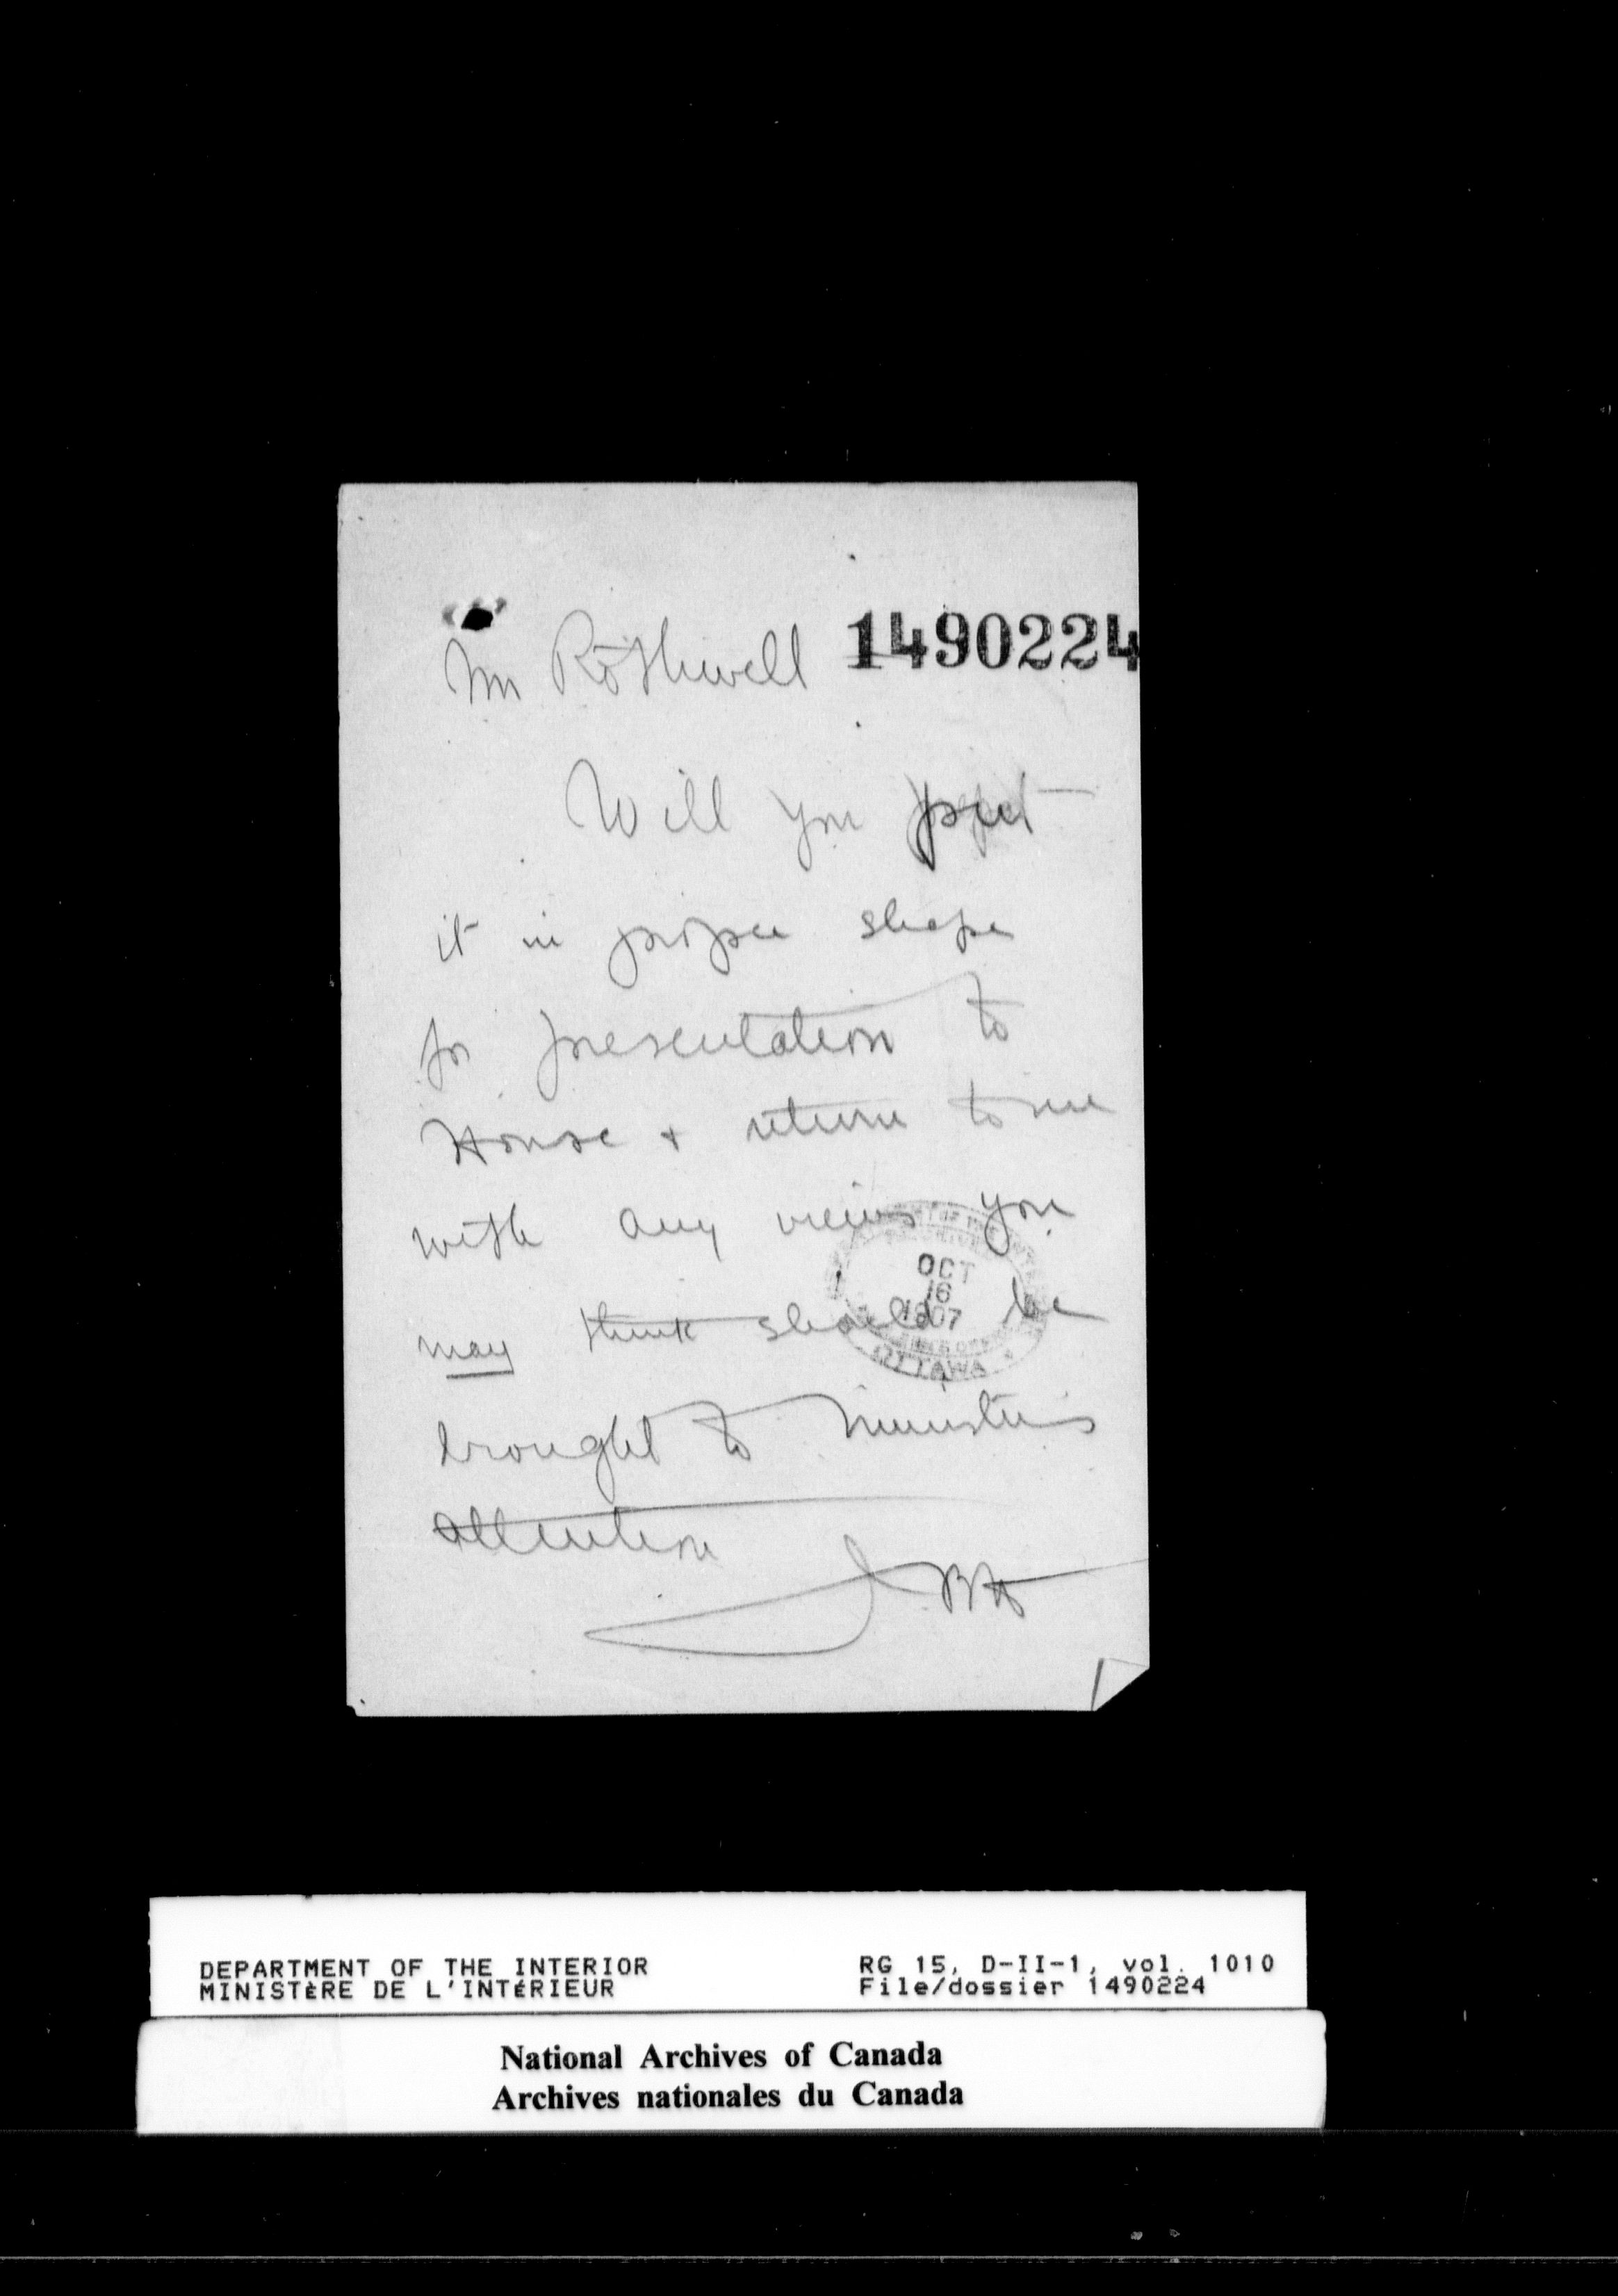 1490224
Mr Rothwell
Will you put
it in proper shape
for presentation to
House & return to me
with any views you
may think should be
OCT
16
1907
OTTAWA
brought to Ministers
attention
DEPARTMENT OF THE INTERIOR
MINISTÈRE DE L'INTÉRIEUR
RG 15, D-II-1, vol. 1010
File/dossier 1490224
National Archives of Canada
Archives nationales du Canada